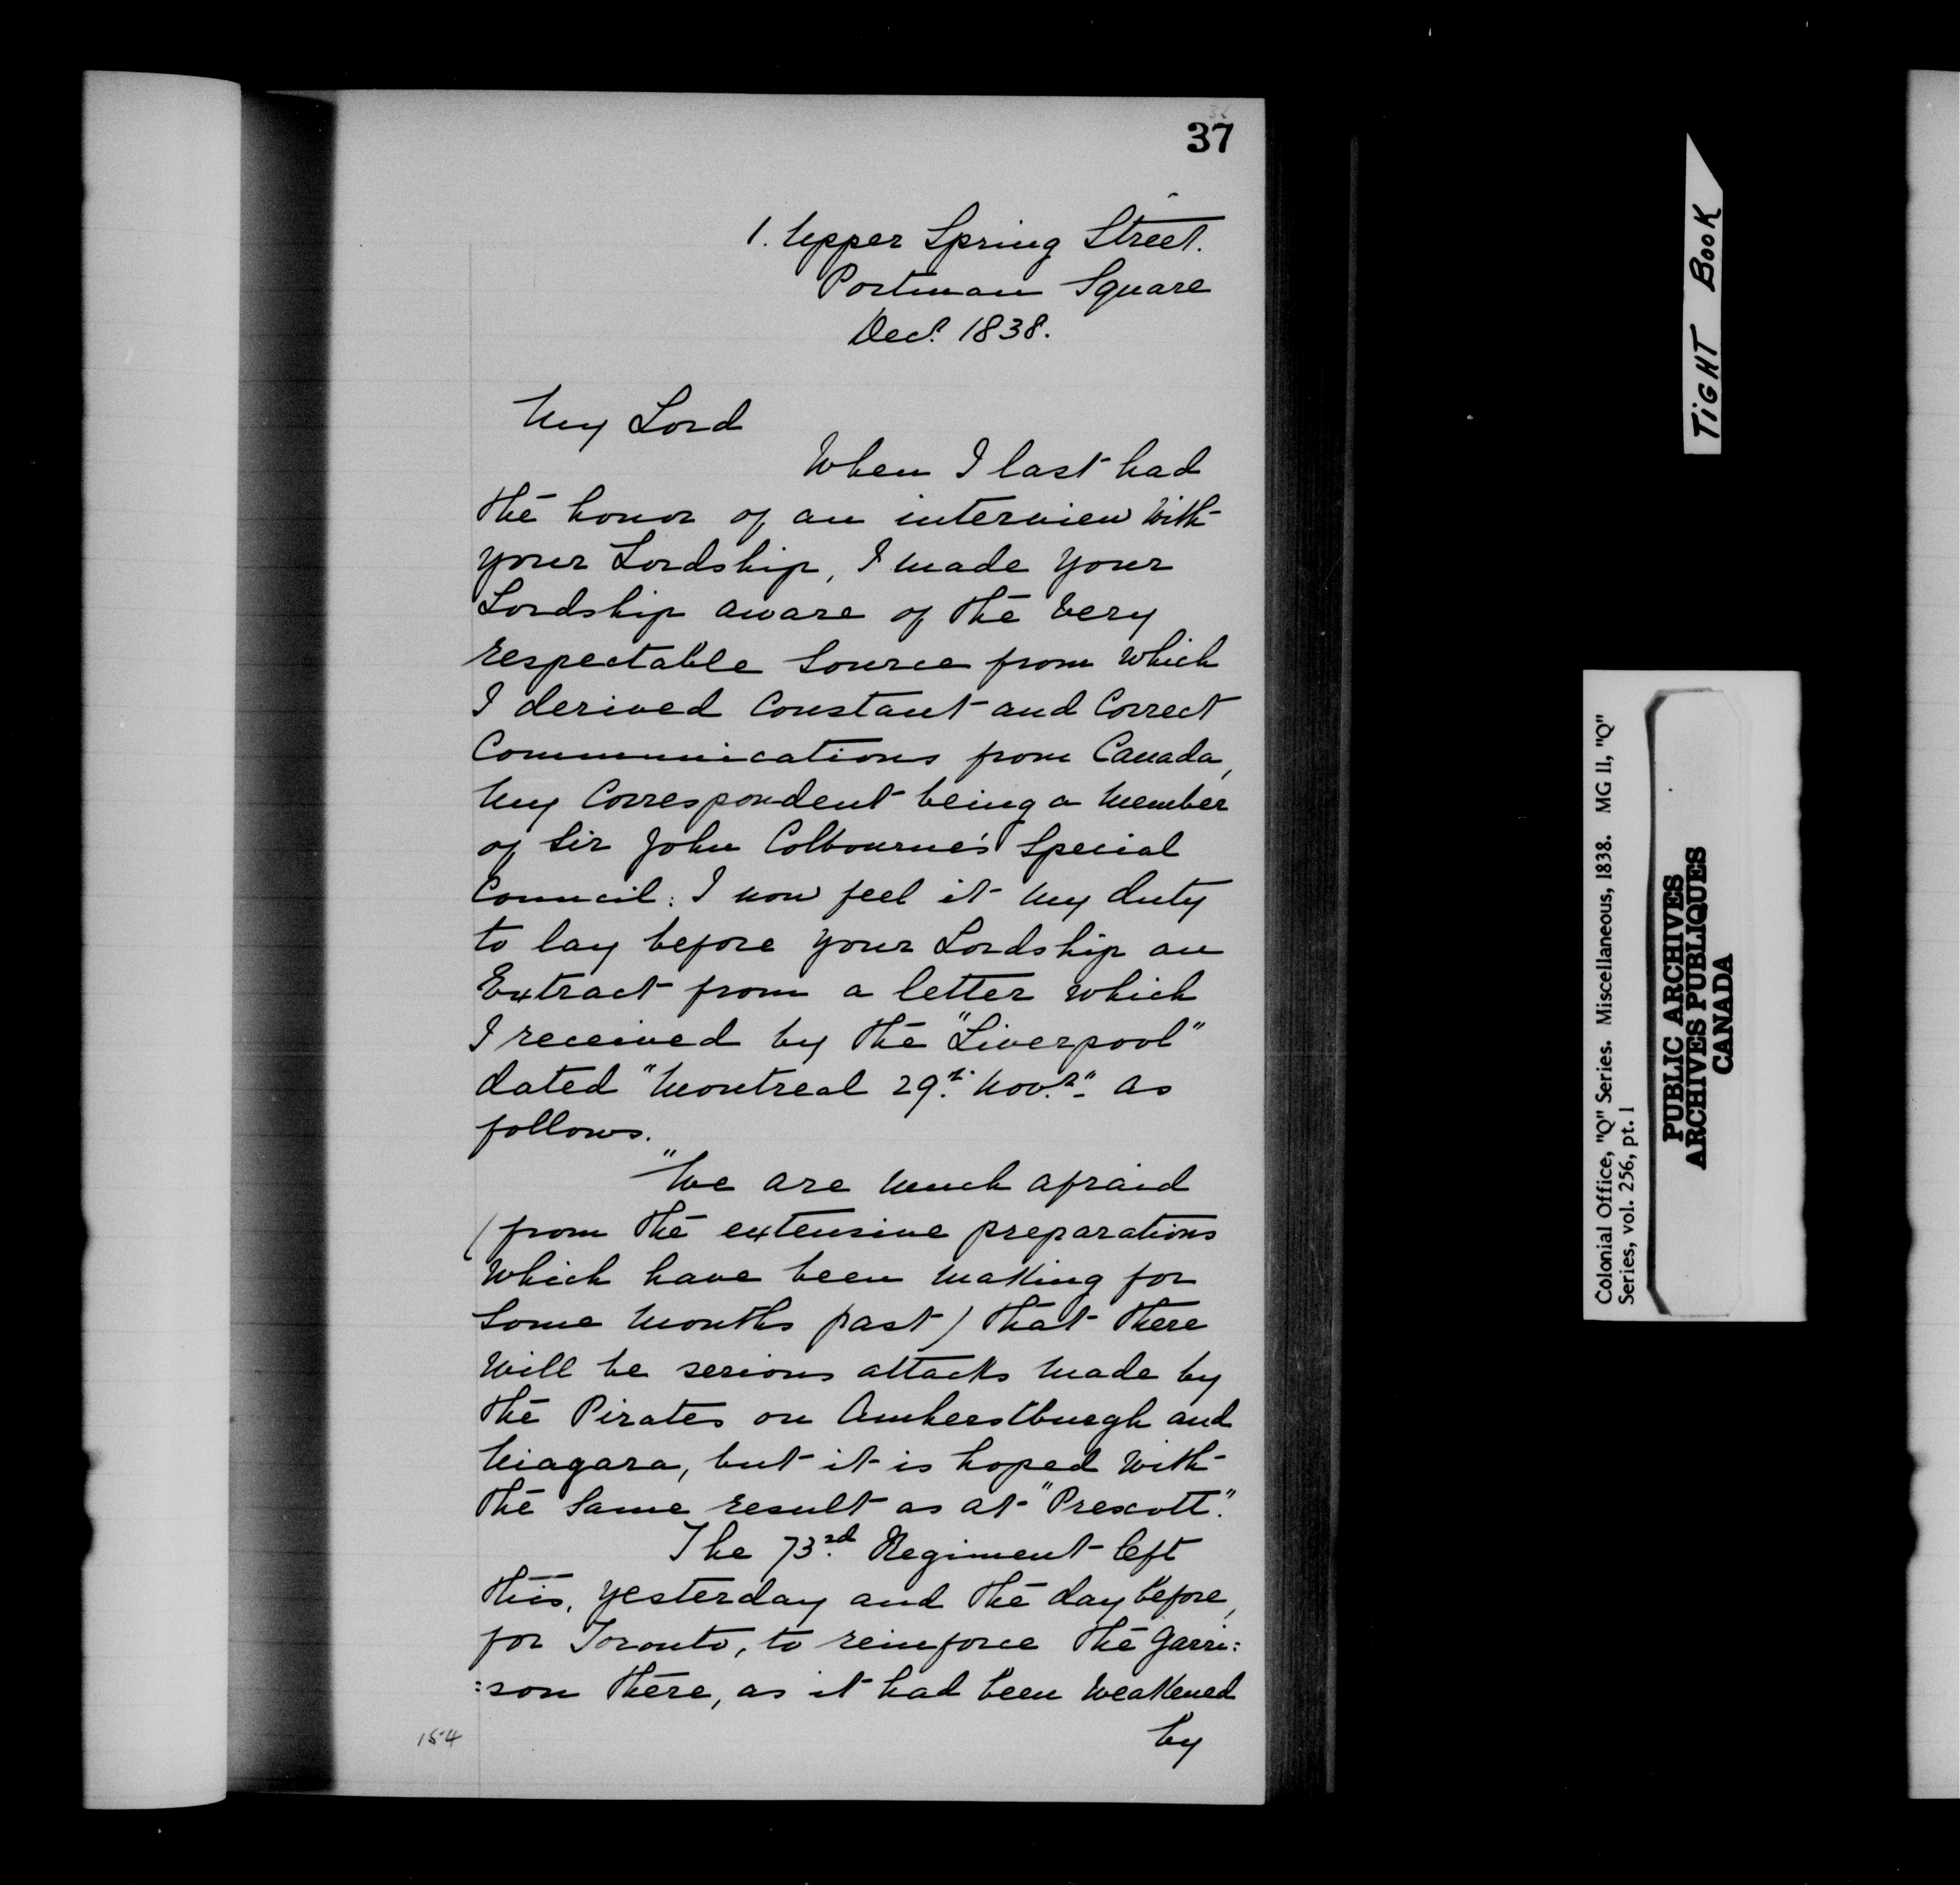 37
1. Upper Spring Street.
Portman Square
Decr. 1838.
My Lord
When I last had
the honor of an interview with
your Lordship, I made your
Lordship aware of the very
respectable source from which
I derived Constant and Correct
Communications from Canada,
My Correspondent being a Member
of Sir John Colbourne's Special
Council: I now feel it my duty
to lay before your Lordship an
Extract from a letter which
I received by the "Liverpool"
dated "Montreal 29th. Novr." as
follows.
"We are much afraid
(from the extensive preparations
which have been making for
some months past) that there
will be serious attacks made by
the Pirates on Amherstburgh and
Niagara, but it is hoped with
the same result as at "Prescott".
The 73rd. Regiment left
this, yesterday and the day before,
for Toronto, to reinforce the Garri:
:son there, as it had been weakened
by
154
TIGHT BOOK
Colonial Office, "Q" Series. Miscellaneous, 1838. MG 11, "Q"
Series, vol. 256, pt. 1
PUBLIC ARCHIVES
ARCHIVES PUBLIQUES
CANADA